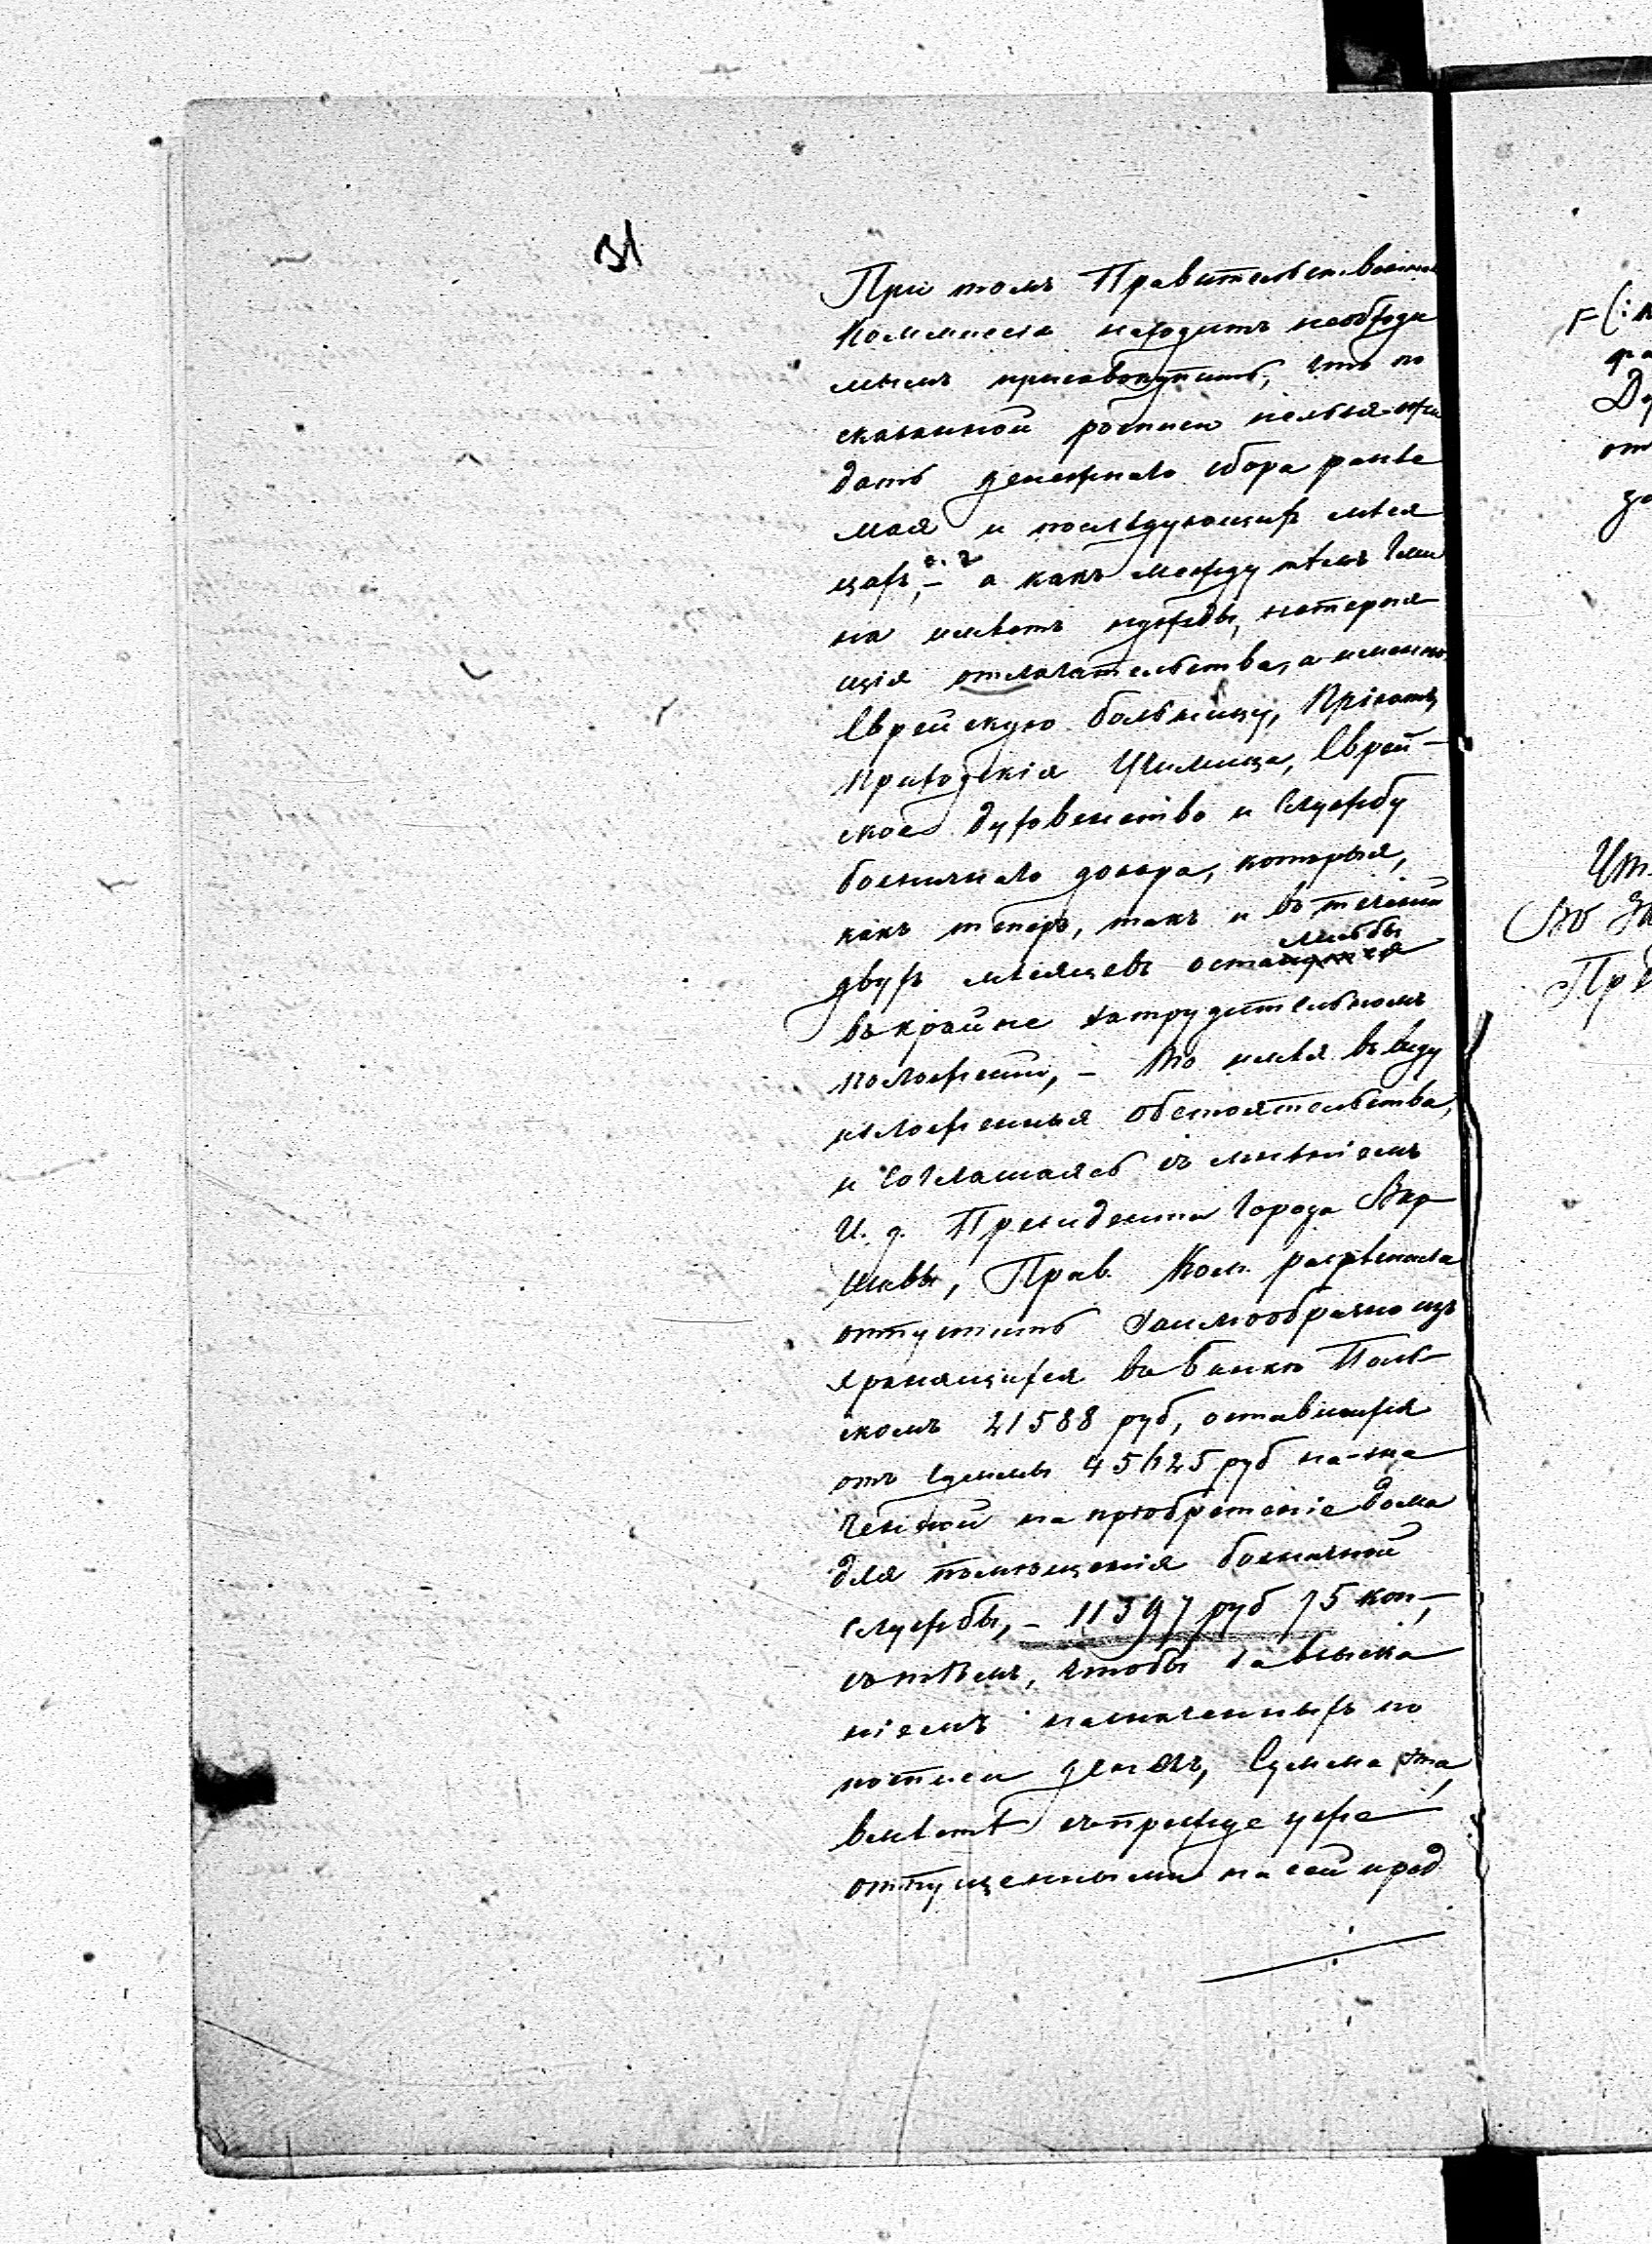 31
При томъ Правительственная
Коммисія находитъ необходи
мымъ присовокупить, что по
сказанной росписи нельзя ожи
дать денежнаго сбора ранѣе
мая и послѣдующихъ мѣся
цахъ, с. г. – а какъ между тѣмъ Гми
на имѣетъ нужды, нетерпя
щія отлагательства, а именно:
Еврейскую больницу, Пріютъ,
приходскія Училища, Еврей-
ское духовенство и Службу
боенничнаго дозора, которыя,
какъ теперь, такъ и въ теченіи
двухъ мѣсяцевъ остались бы
въ крайне затруднительномъ
положеніи, – То имѣя въ виду
изложенныя обстоятельства,
и Соглашаясь съ мнѣніемъ
И. д. Президента Города Вар
шавы, Прав. Ком. разрѣшила
отпустить Заимообразно изъ
хранящихся въ Банкѣ Поль-
скомъ 21588 руб, оставшихся
отъ Суммы 45625 руб назна
ченной на пріобрѣтеніе дома
для помѣщенія боенничной
Службы, – 11397 руб 75 коп,
съ тѣмъ, чтобы за взыска
ніемъ назначенныхъ по
росписи денегъ, Сумма эта,
вмѣстѣ съ прежде уже
отпущенными на сей пред
F (:
от
Чт
Во
Пр